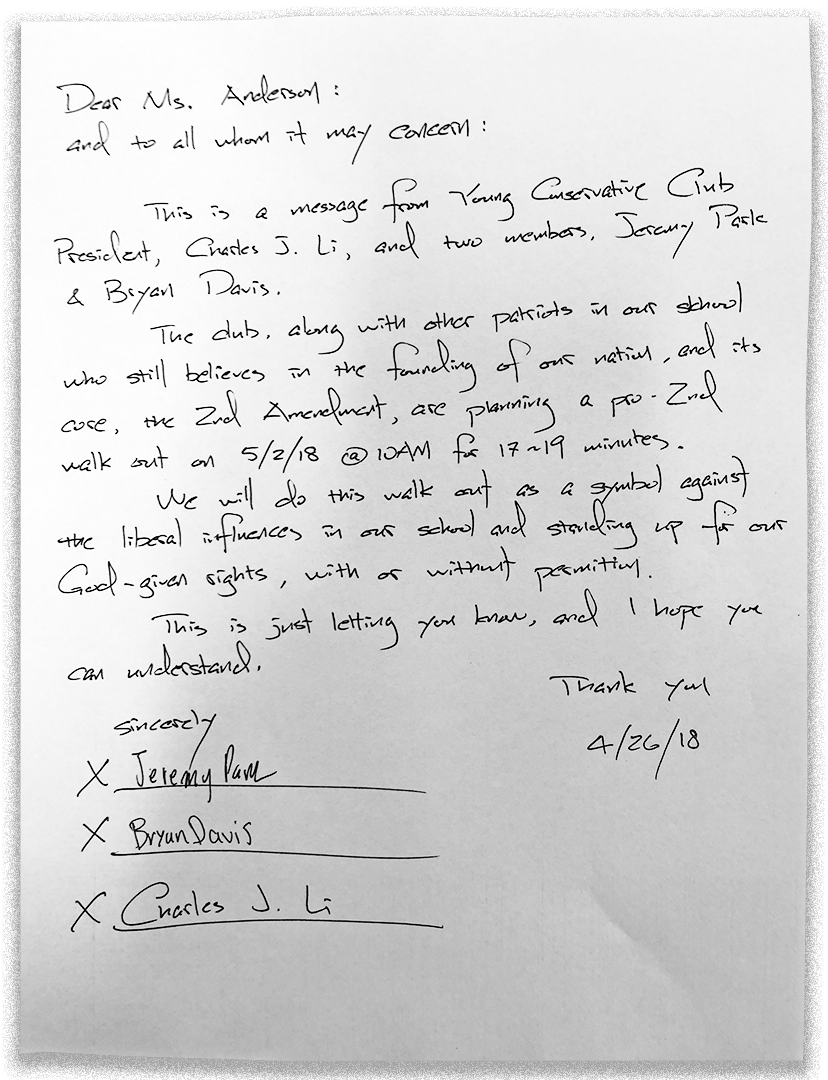 Dear Ms. Anderson:
and to all whom it may concern:
This is a message from Young Conservative Club
President, Charles J. Li, and two members, Jeremy Park
& Bryan Davis.
The club, along with other patriots in our school
who still believes in the founding of our nation, and its
core, the 2nd Amendment, are planning a pro-2nd
walk out on 5/2/18 @ 10AM for 17~19 minutes.
We will do this walk out as a symbol against
the liberal influences in our school and standing up for our
God-given rights, with or without permition.
This is just letting you know, and I hope you
can understand.
Thank you
4/26/18
sincerely
X Jeremy Park
X Bryan Davis
X Charles J. Li